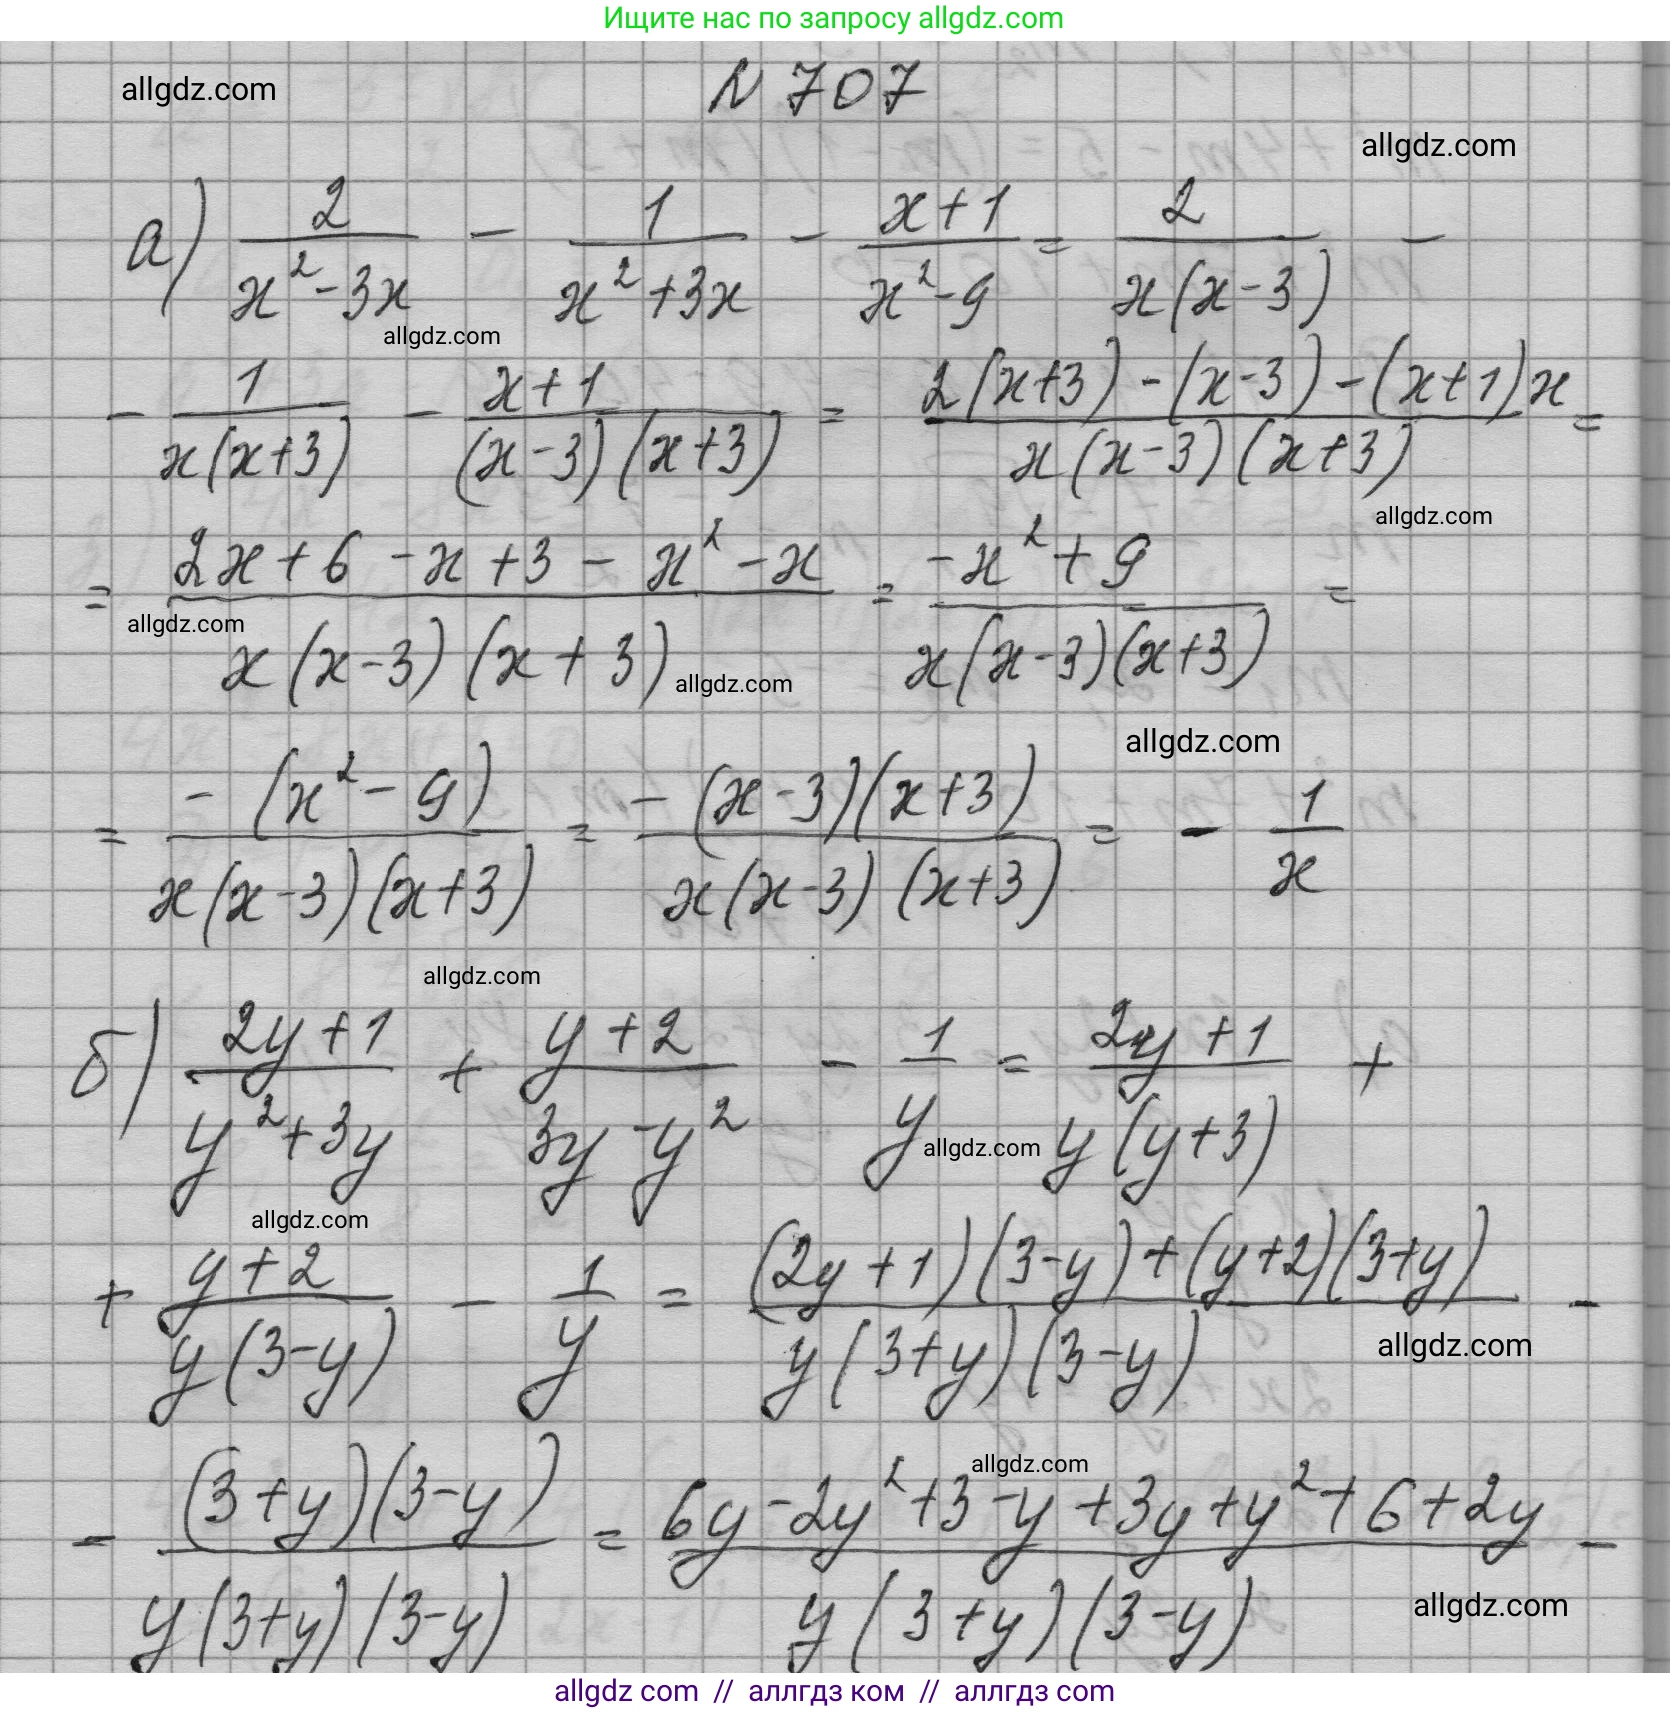 Ищите нас по запросу allgdz.com
allgdz.com
N 707
allgdz.com
а) 2/(x²-3x) - 1/(x²+3x) - (x+1)/(x²-9) = 2/(x(x-3)) -
allgdz.com
- 1/(x(x+3)) - (x+1)/((x-3)(x+3)) = (2(x+3)-(x-3)-(x+1)x)/(x(x-3)(x+3)) =
allgdz.com
= (2x+6-x+3-x²-x)/(x(x-3)(x+3)) = (-x²+9)/(x(x-3)(x+3)) =
allgdz.com
allgdz.com
allgdz.com
= (-(x²-9))/(x(x-3)(x+3)) = (-(x-3)(x+3))/(x(x-3)(x+3)) = - 1/x
allgdz.com
б) (2y+1)/(y²+3y) + (y+2)/(3y-y²) - 1/y = (2y+1)/(y(y+3)) +
allgdz.com
allgdz.com
+ (y+2)/(y(3-y)) - 1/y = ((2y+1)(3-y)+(y+2)(3+y))/(y(3+y)(3-y)) -
allgdz.com
allgdz.com
- ((3+y)(3-y))/(y(3+y)(3-y)) = (6y-2y²+3-y+3y+y²+6+2y)/(y(3+y)(3-y)) -
allgdz.com
allgdz com // аллгдз ком // аллгдз com